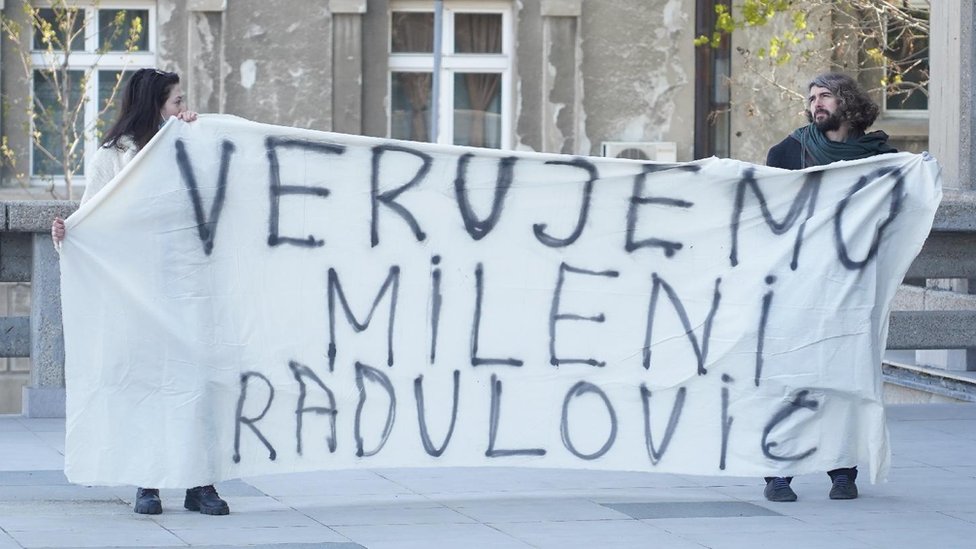 VERUJEMO
MiLENi
RADULOViĆ